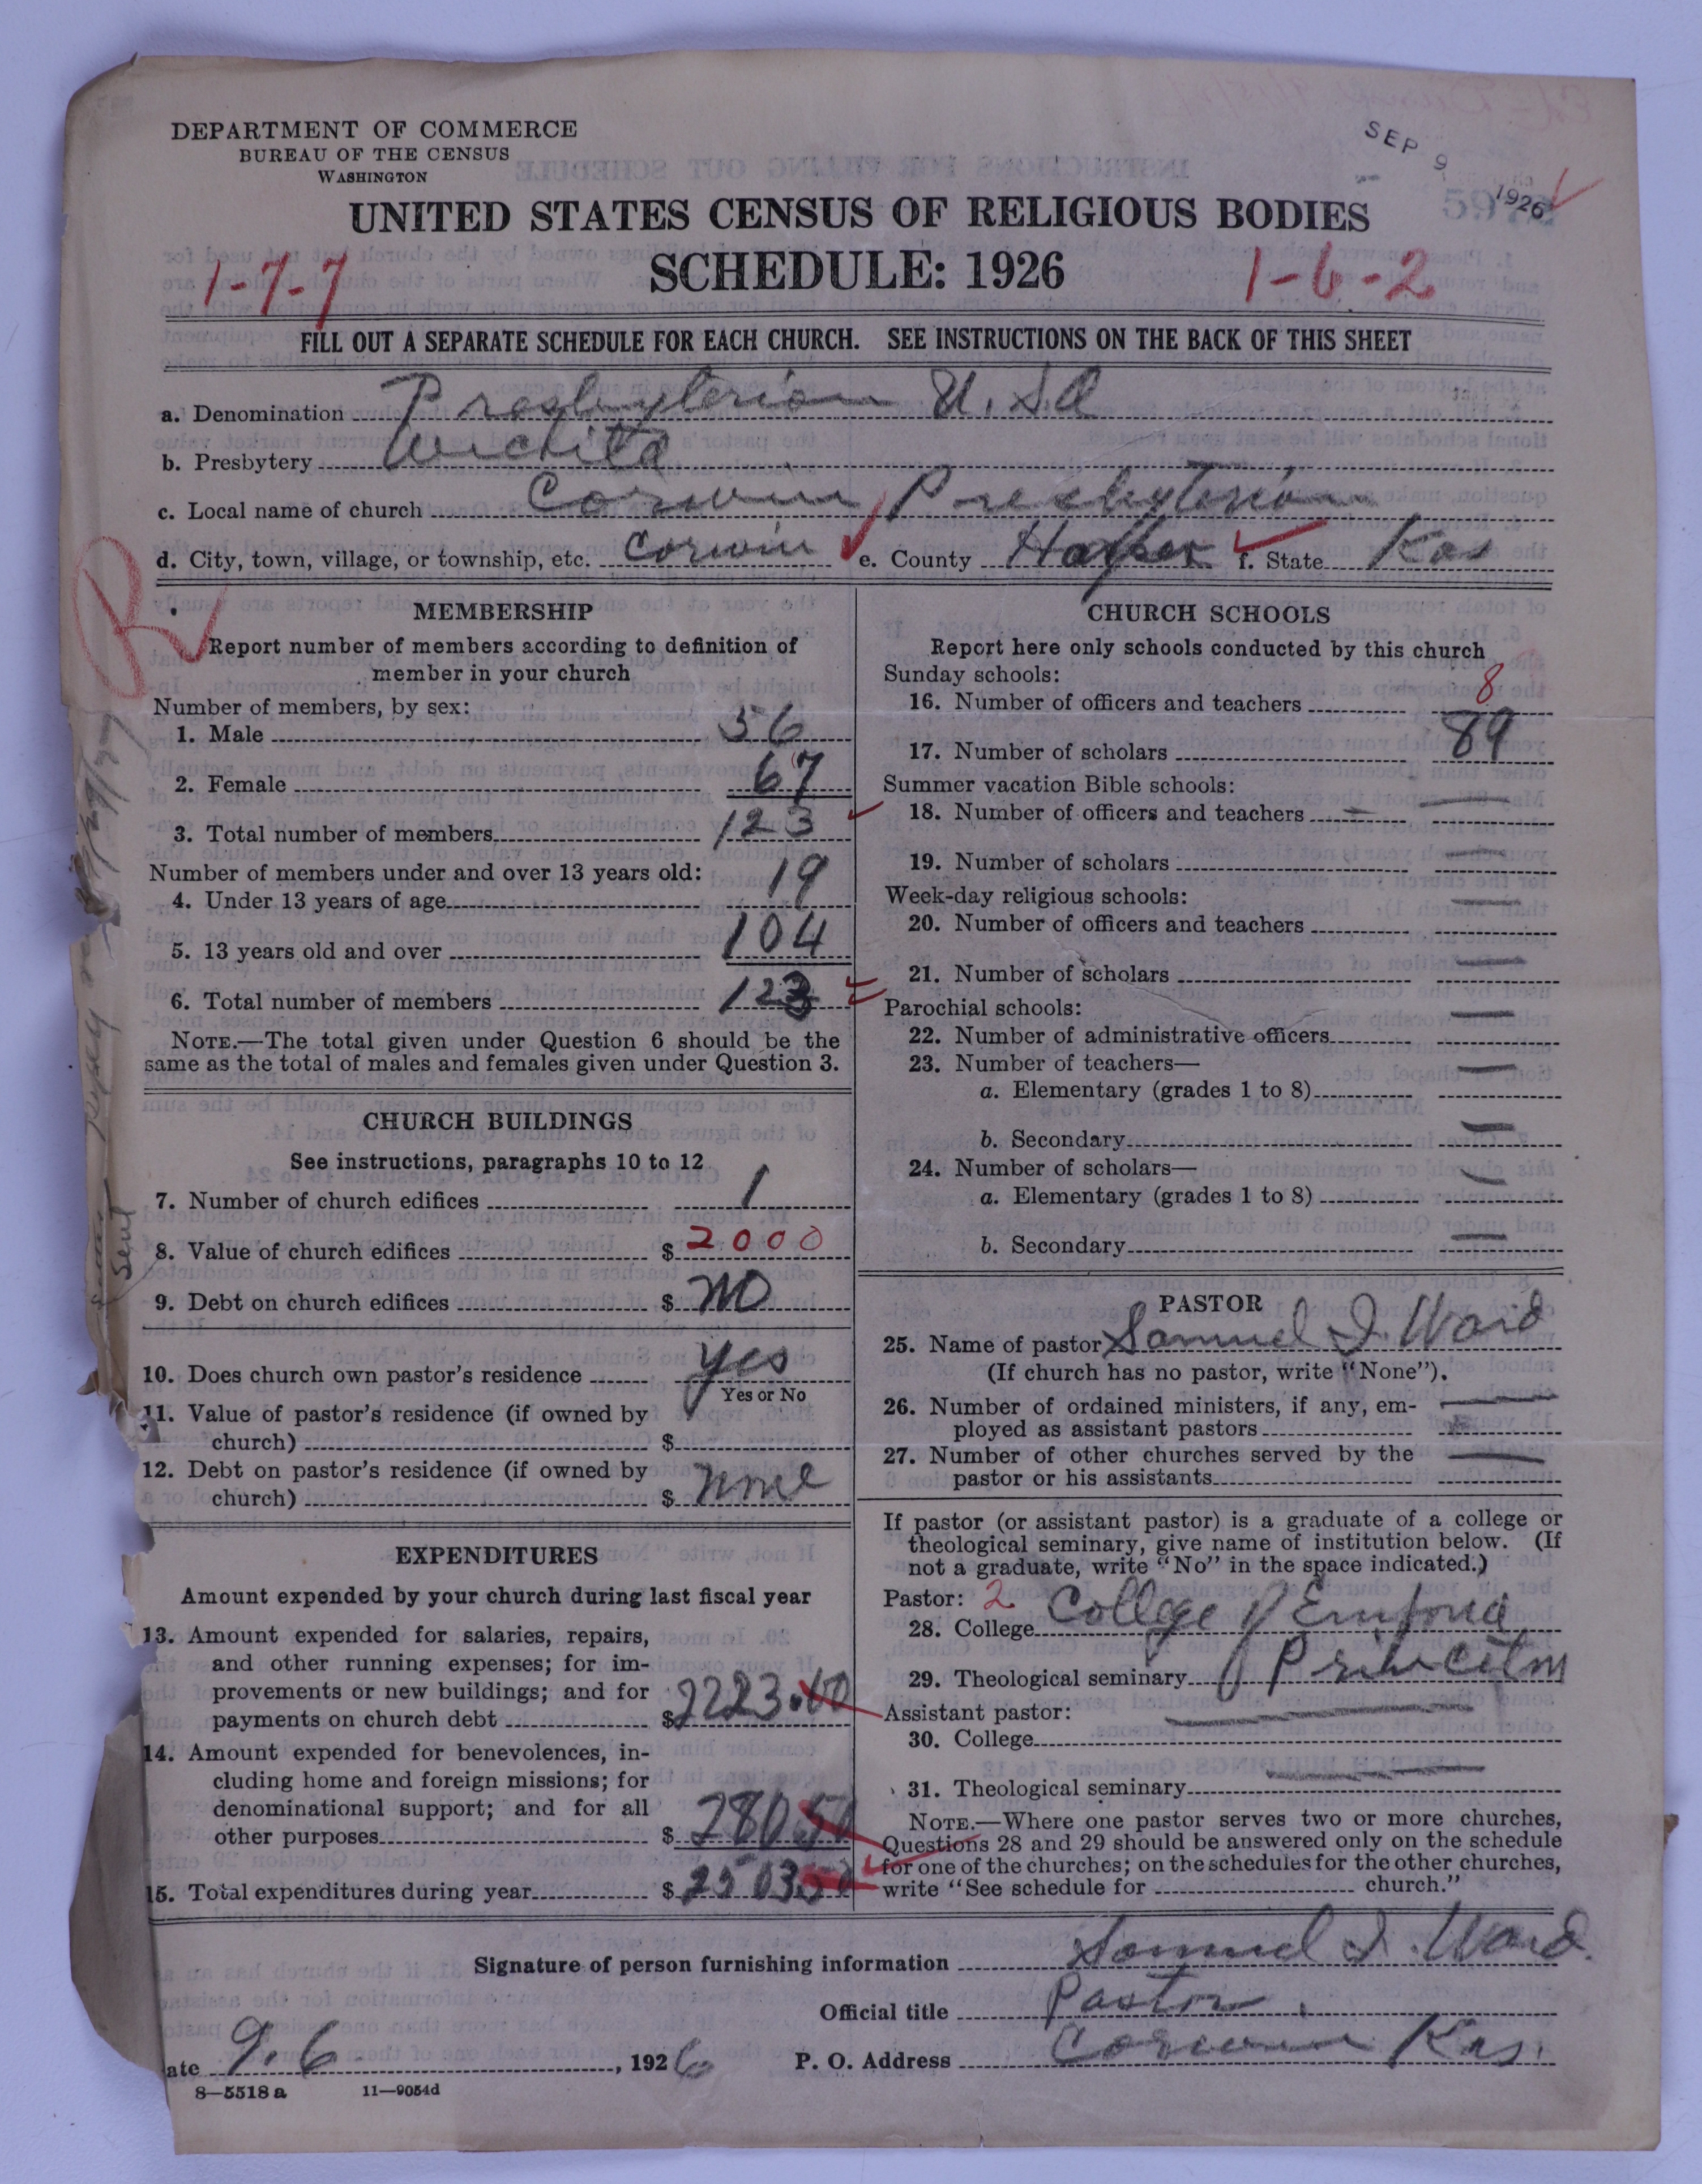 DEPARTMENT OF COMMERCE
BUREAU OF THE CENSUS
WASHINGTON
SEP 9 1926
UNITED STATES CENSUS OF RELIGIOUS BODIES
SCHEDULE: 1926
1-7-7
1-6-2
FILL OUT A SEPARATE SCHEDULE FOR EACH CHURCH. SEE INSTRUCTIONS ON THE BACK OF THIS SHEET
a. Denomination Presbyterian U.S.A
b. Presbytery Wichita
c. Local name of church Corwin Presbyterian
d. City, town, village, or township, etc. Corwin e. County Harper f. State Kas
R
MEMBERSHIP
Report number of members according to definition of
member in your church
Number of members, by sex:
1. Male 56
2. Female 67
3. Total number of members 123
Number of members under and over 13 years old:
4. Under 13 years of age 19
5. 13 years old and over 104
6. Total number of members 123
NOTE.—The total given under Question 6 should be the
same as the total of males and females given under Question 3.
CHURCH BUILDINGS
See instructions, paragraphs 10 to 12
7. Number of church edifices 1
8. Value of church edifices $ 2000
9. Debt on church edifices $ no
10. Does church own pastor's residence yes
Yes or No
11. Value of pastor's residence (if owned by
church) $
12. Debt on pastor's residence (if owned by
church) $ none
EXPENDITURES
Amount expended by your church during last fiscal year
13. Amount expended for salaries, repairs,
and other running expenses; for im-
provements or new buildings; and for
payments on church debt $ 2223.00
14. Amount expended for benevolences, in-
cluding home and foreign missions; for
denominational support; and for all
other purposes $ 280.50
15. Total expenditures during year $ 2503.50
CHURCH SCHOOLS
Report here only schools conducted by this church
Sunday schools:
16. Number of officers and teachers 8
17. Number of scholars 89
Summer vacation Bible schools:
18. Number of officers and teachers —
19. Number of scholars —
Week-day religious schools:
20. Number of officers and teachers —
21. Number of scholars —
Parochial schools:
22. Number of administrative officers —
23. Number of teachers—
a. Elementary (grades 1 to 8) —
b. Secondary —
24. Number of scholars—
a. Elementary (grades 1 to 8) —
b. Secondary —
PASTOR
25. Name of pastor Samuel I. Ward
(If church has no pastor, write "None").
26. Number of ordained ministers, if any, em-
ployed as assistant pastors —
27. Number of other churches served by the
pastor or his assistants —
If pastor (or assistant pastor) is a graduate of a college or
theological seminary, give name of institution below. (If
not a graduate, write "No" in the space indicated.)
Pastor: 2
28. College College of Emporia
29. Theological seminary Princeton
Assistant pastor:
30. College —
31. Theological seminary —
NOTE.—Where one pastor serves two or more churches,
Questions 28 and 29 should be answered only on the schedule
for one of the churches; on the schedules for the other churches,
write "See schedule for church."
Signature of person furnishing information Samuel I. Ward.
Official title Pastor.
ate 9.6, 1926 P. O. Address Corwin Kas.
8—5518 a 11—9054d